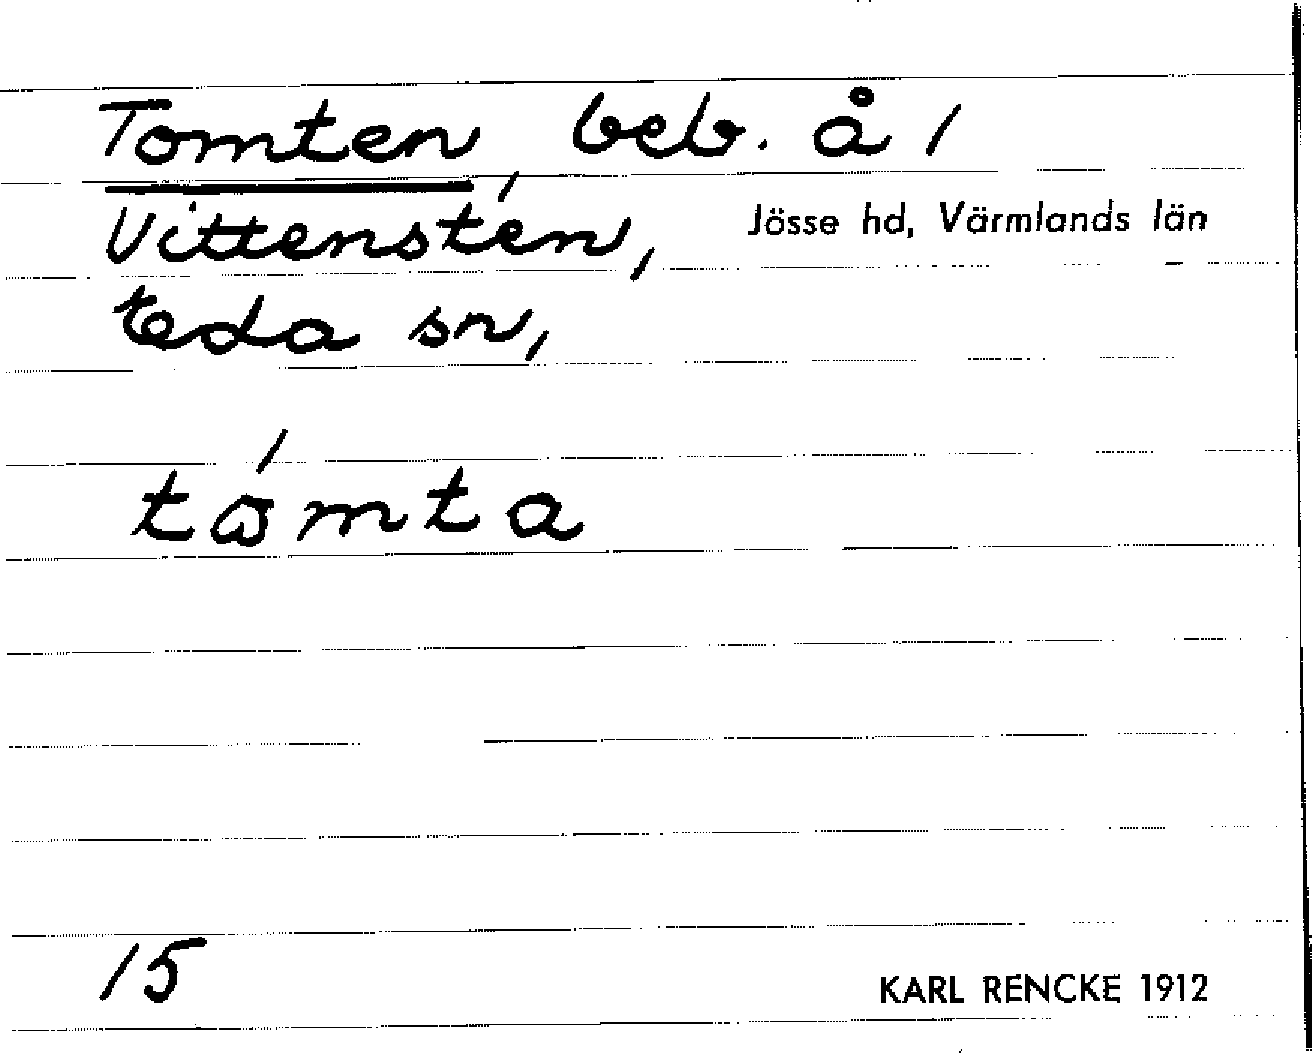 Tomten, beb. å /
Vittenstén, Jösse hd, Värmlands län
Eda sn,
tómta
15 KARL RENCKE 1912